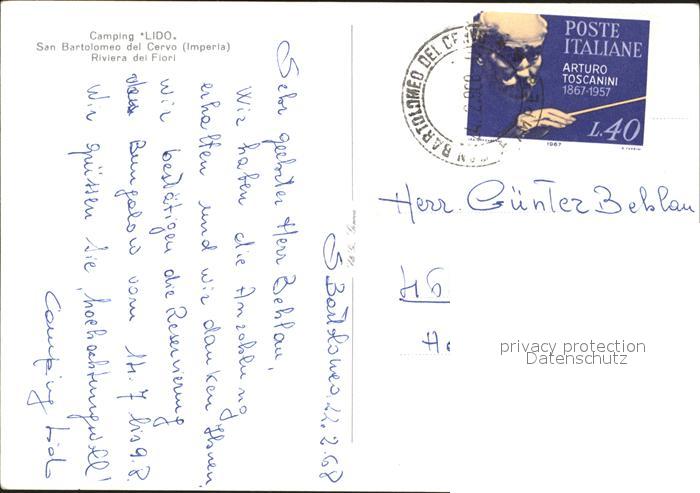 Camping "LIDO"
San Bartolomeo del Cervo (Imperia)
Riviera dei Fiori
S. Bartolomeo, 22.2.68
Sehr geehrter Herr Beblau,
Wir haben die Anzahlung
erhalten und wir danken Ihnen.
Wir bestätigen die Reservierung
Bungalow vom 14.7 bis 9.8.
Wir grüssen Sie, hochachtungsvoll!
Camping Lido
POSTE
ITALIANE
ARTURO
TOSCANINI
1867-1957
L.40
1967
BARTOLOMEO DEL
Herr. Günter Beblau
46
privacy protection
Datenschutz